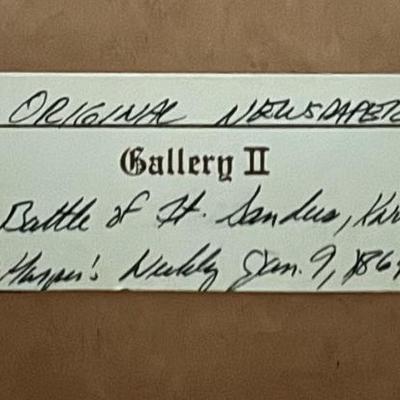 ORIGINAL NEWSPAPER
Gallery II
Battle of Ft. Sanders,
Harper's Weekly Jan. 9, 186